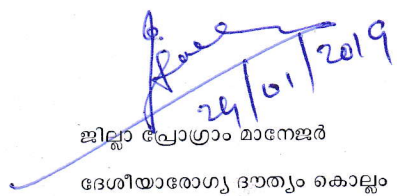 24/01/2019
ജില്ലാ പ്രോഗ്രാം മാനേജർ
ദേശീയാരോഗ്യ ദൗത്യം കൊല്ലം